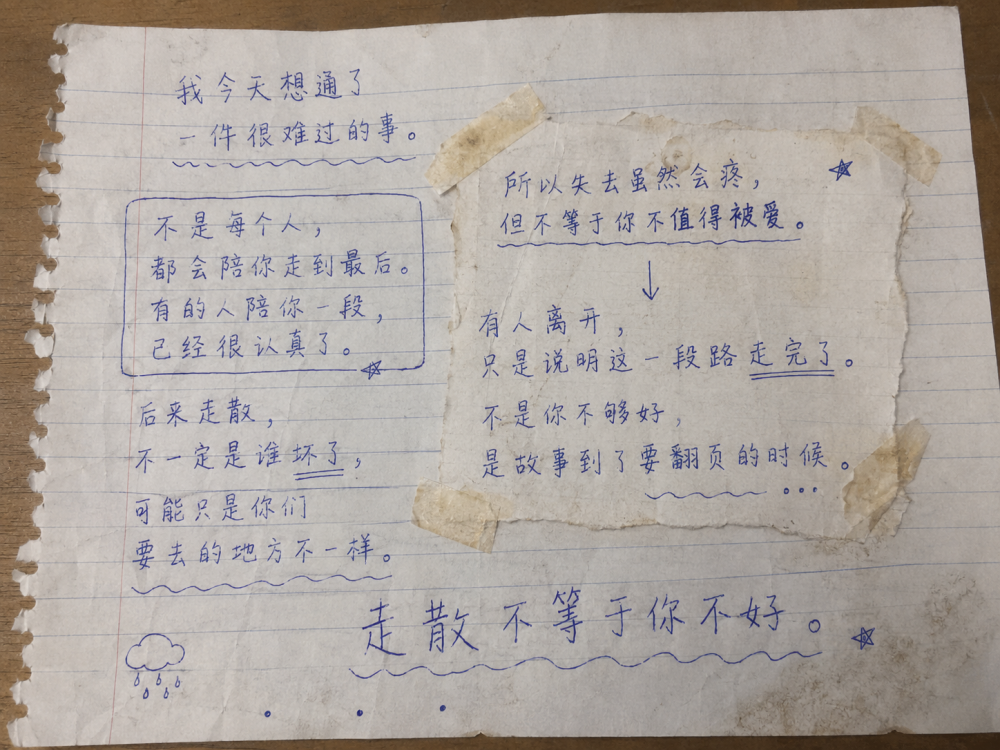 我今天想通了
一件很难过的事。
不是每个人，
都会陪你走到最后。
有的人陪你一段，
已经很认真了。
后来走散，
不一定是谁坏了，
可能只是你们
要去的地方不一样。
所以失去虽然会疼，
但不等于你不值得被爱。
↓
有人离开，
只是说明这一段路走完了。
不是你不够好，
是故事到了要翻页的时候。
...
走散不等于你不好。